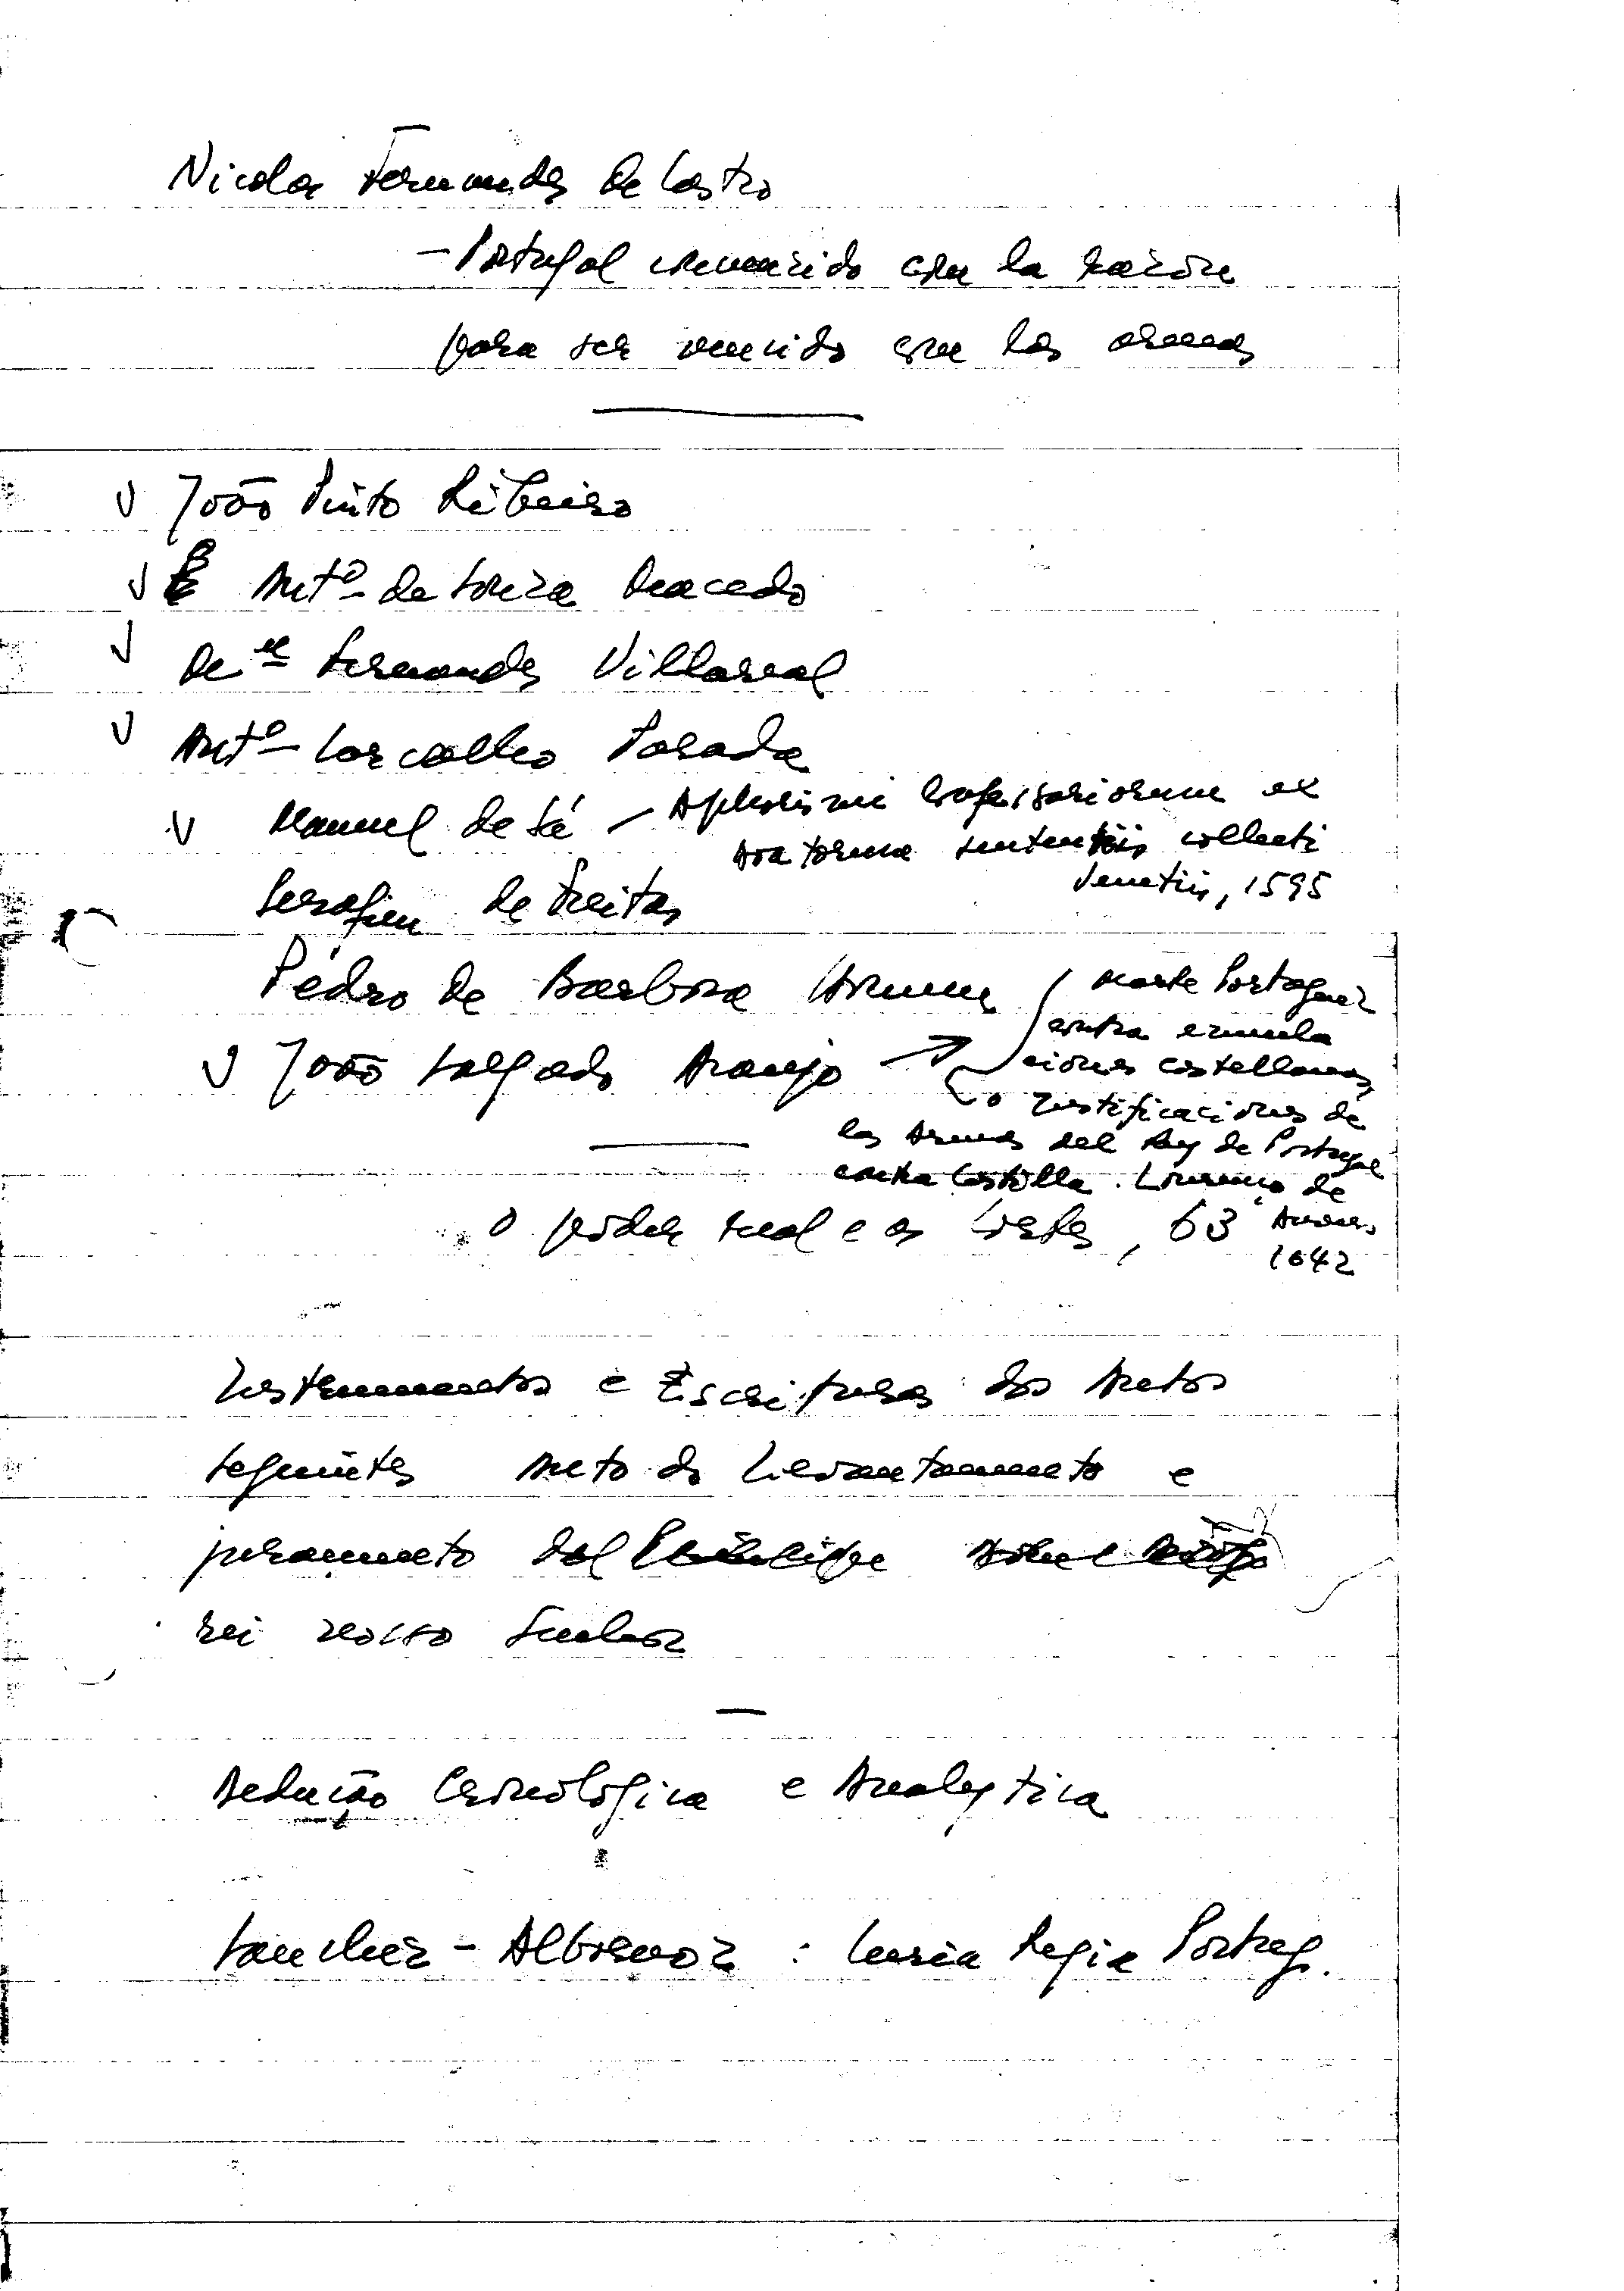 Nicolas Fernandes de Castro
- Portugal convencido con la razón
para ser vencido con las armas
João Pinto Ribeiro
Antº de Souza Macedo
Mel Fernandes Villareal
Antº Carvalho Parada
Manuel de Sá - Aphorismi confessariorum ex
doctorum sententiis collecti
Venetiis, 1595
Serafim de Freitas
Pedro de Barbosa Homem
João Salgado Araujo →
Marte Portugues
contra emula
ciones castellanas
o Justificaciones de
las Armas del Rey de Portugal
contra Castilla. Lourenço de
Anvers
1642
O poder real e as Cortes, 63
Instrumentos e Escrituras dos Autos
seguintes Auto do Levantamento e
juramento del
rei nosso Senhor
Dedução Cronológica e Analytica
Sanchez - Albornoz : Curia Regia Portug.